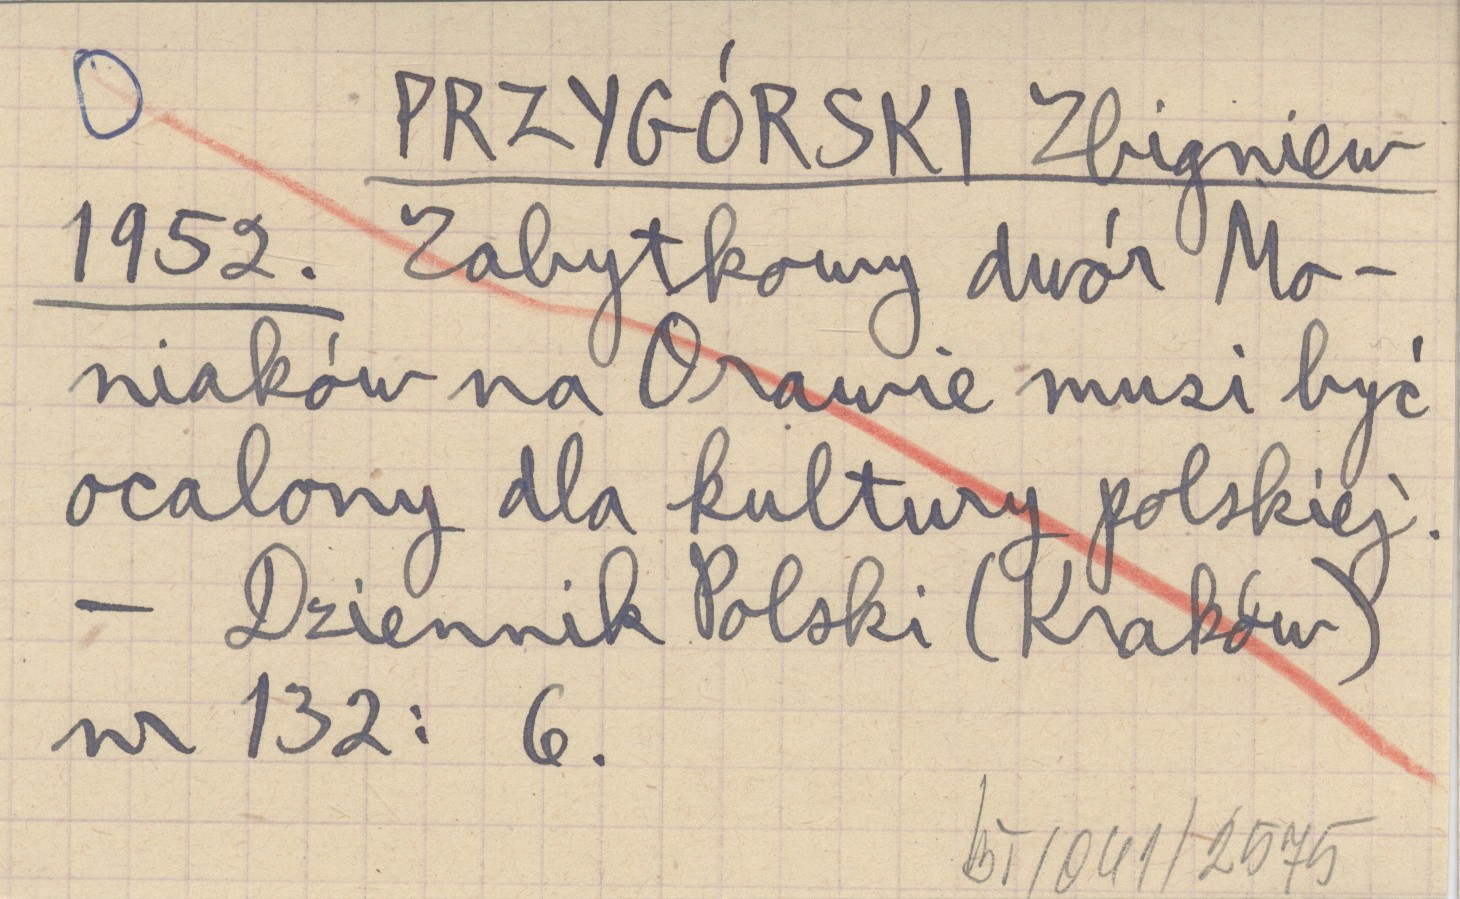 PRZYGÓRSKI Zbigniew
1952. Zabytkowy dwór Mo-
niaków na Orawie musi być
ocalony dla kultury polskiej.
— Dziennik Polski (Kraków)
nr 132: 6.
/041/2575